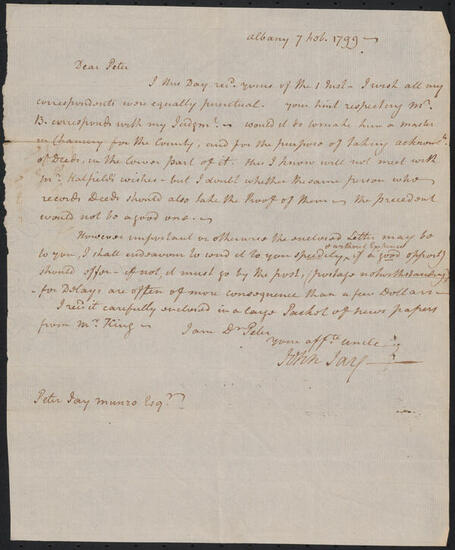 Albany 7 Feb. 1799 —
Dear Peter
I this Day recd. yours of the 1 Inst — I wish all my
correspondents were equally punctual. your hint respecting Mr.
B. corresponds with my Judgmt. — would it do to make him a master
in Chancery for the County, and for the purpose of taking acknowlts.
of Deeds, in the lower part of it. this I know will not meet with
Mr. Hatfields wishes — but I doubt whether the same person who
records Deeds should also take the Proof of them — the precedent
would not be a good one. —
However important or otherwise the enclosed Letter may be
to you, I shall endeavour to send it to you speedily, & without Expence if a good opporty.
should offer — if not, it must go by the post, (postage notwithstanding)
for Delays are often of more consequence than a few Dollars —
I recd. it carefully enclosed in a large Packet of news papers
from Mr. King — I am Dr. Peter
Your affte. uncle
John Jay —
Peter Jay Munro Esqr.